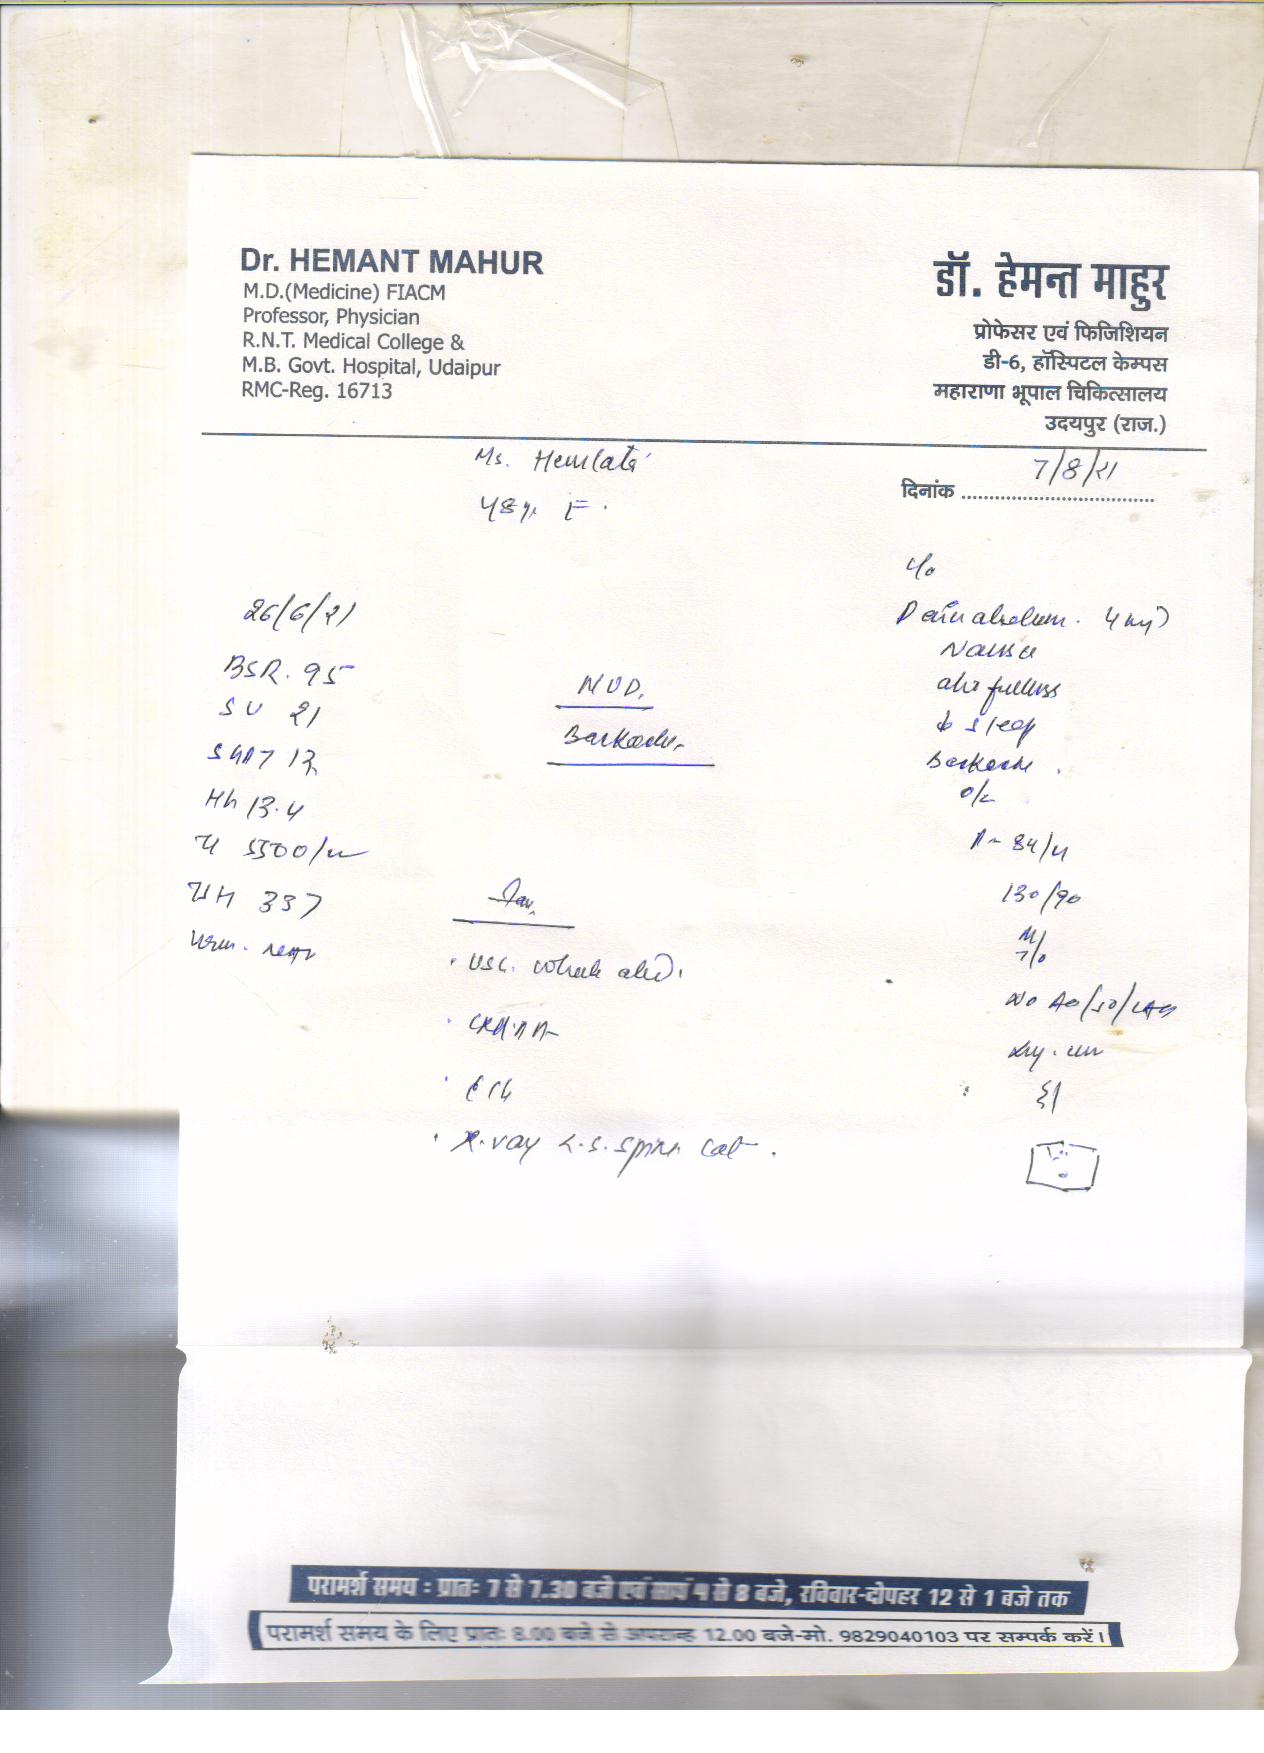 Dr. HEMANT MAHUR
M.D.(Medicine) FIACM
Professor, Physician
R.N.T. Medical College &
M.B. Govt. Hospital, Udaipur
RMC-Reg. 16713
डॉ. हेमन्त माहुर
प्रोफेसर एवं फिजिशियन
डी-6, हॉस्पिटल केम्पस
महाराणा भूपाल चिकित्सालय
उदयपुर (राज.)
Ms. Hemlata
48yr F.
दिनांक 7/8/21
c/o
Pain abdomen.
Nausea
abd fullness
↓ sleep
Backache.
o/e
P- 84/m
130/90
No
26/6/21
BSR. 95
SU 21
SGPT 13
Hb 13.4
5500/
337
NUD.
Backache
Inv.
• USG. whole abd.
• X-ray L.S. Spine Lat.
परामर्श समय : प्रातः 7 से 7.30 बजे एवं सायं 4 से 8 बजे, रविवार-दोपहर 12 से 1 बजे तक
परामर्श समय के लिए प्रातः 8.00 बजे से अपरान्ह 12.00 बजे-मो. 9829040103 पर सम्पर्क करें।